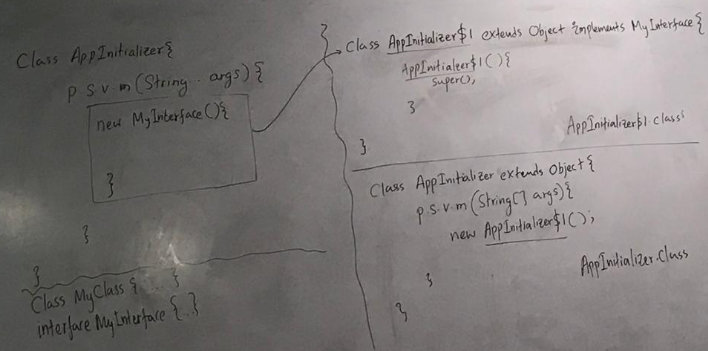 Class AppInitializer{
p s.v.m (String. args) {
new MyInterface(){
}
}
}
Class MyClass { ... }
interface MyInterface {..}
}
Class AppInitializer$1 extends Object Implements MyInterface{
AppInitializer$1(){
super();
}
}
AppInitializer$1.class
Class AppInitializer extends Object{
p s.v.m (String[] args){
new AppInitializer$1();
}
}
AppInitializer.Class